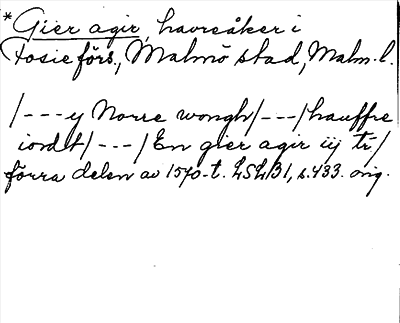 *Gier agir, havreåker i
Fosie förs., Malmö stad, Malm. l.
/---y Norre wongh/---/hauffre
iordt/---/En gier agir iij tr/
förra delen av 1570-t. LSLB1, s.433. orig.